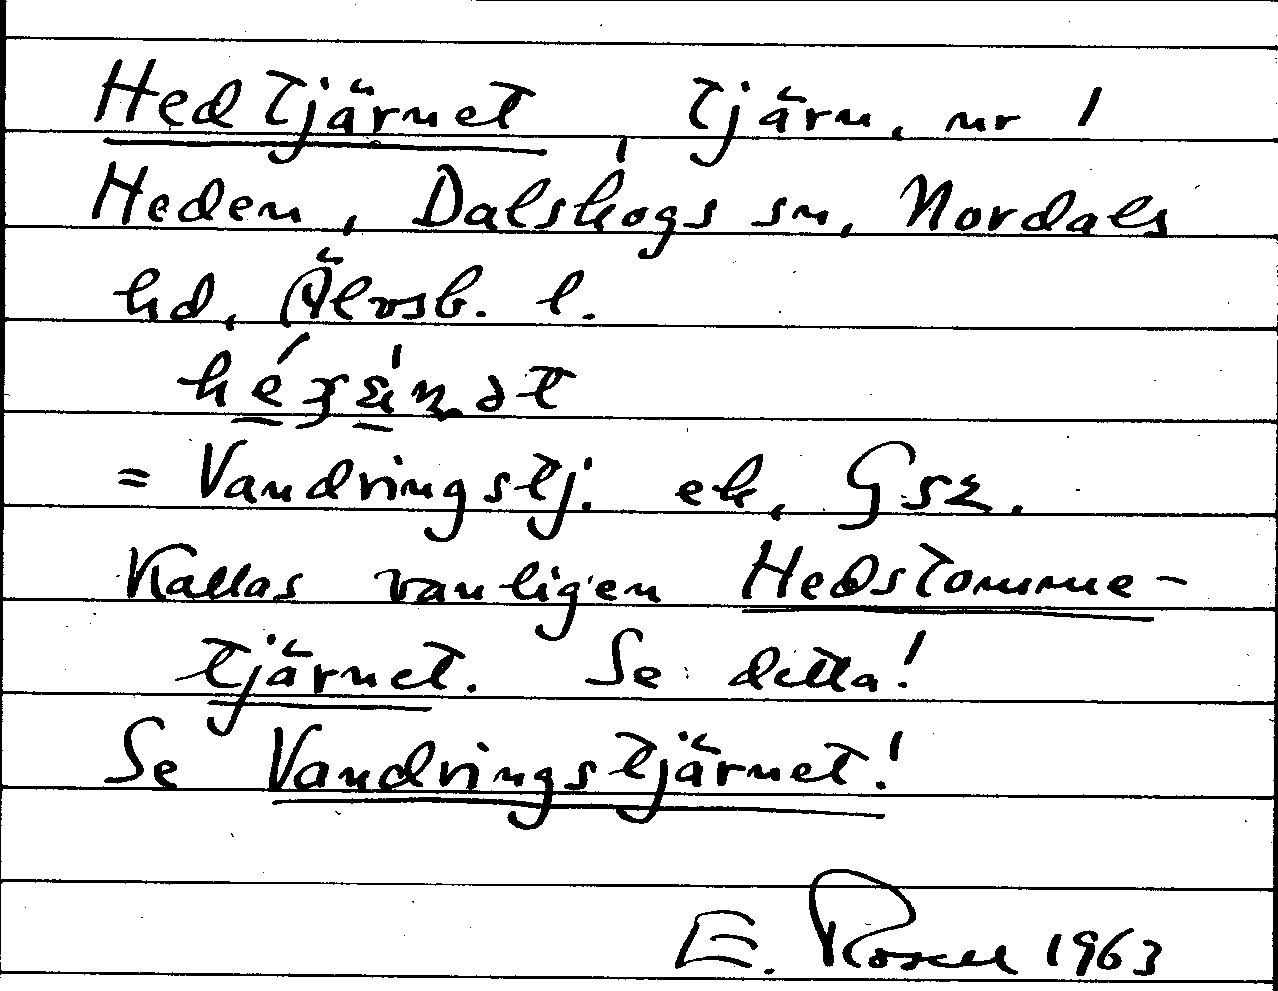 Hedtjärnet, tjärn, nr 1
Heden, Dalskogs sn, Nordals
hd, Älvsb. l.
= Vandringstj. ek, Gsz.
Kallas vanligen Hedstomme-
tjärnet. Se detta!
Se Vandringstjärnet!
E. Rosell 1963